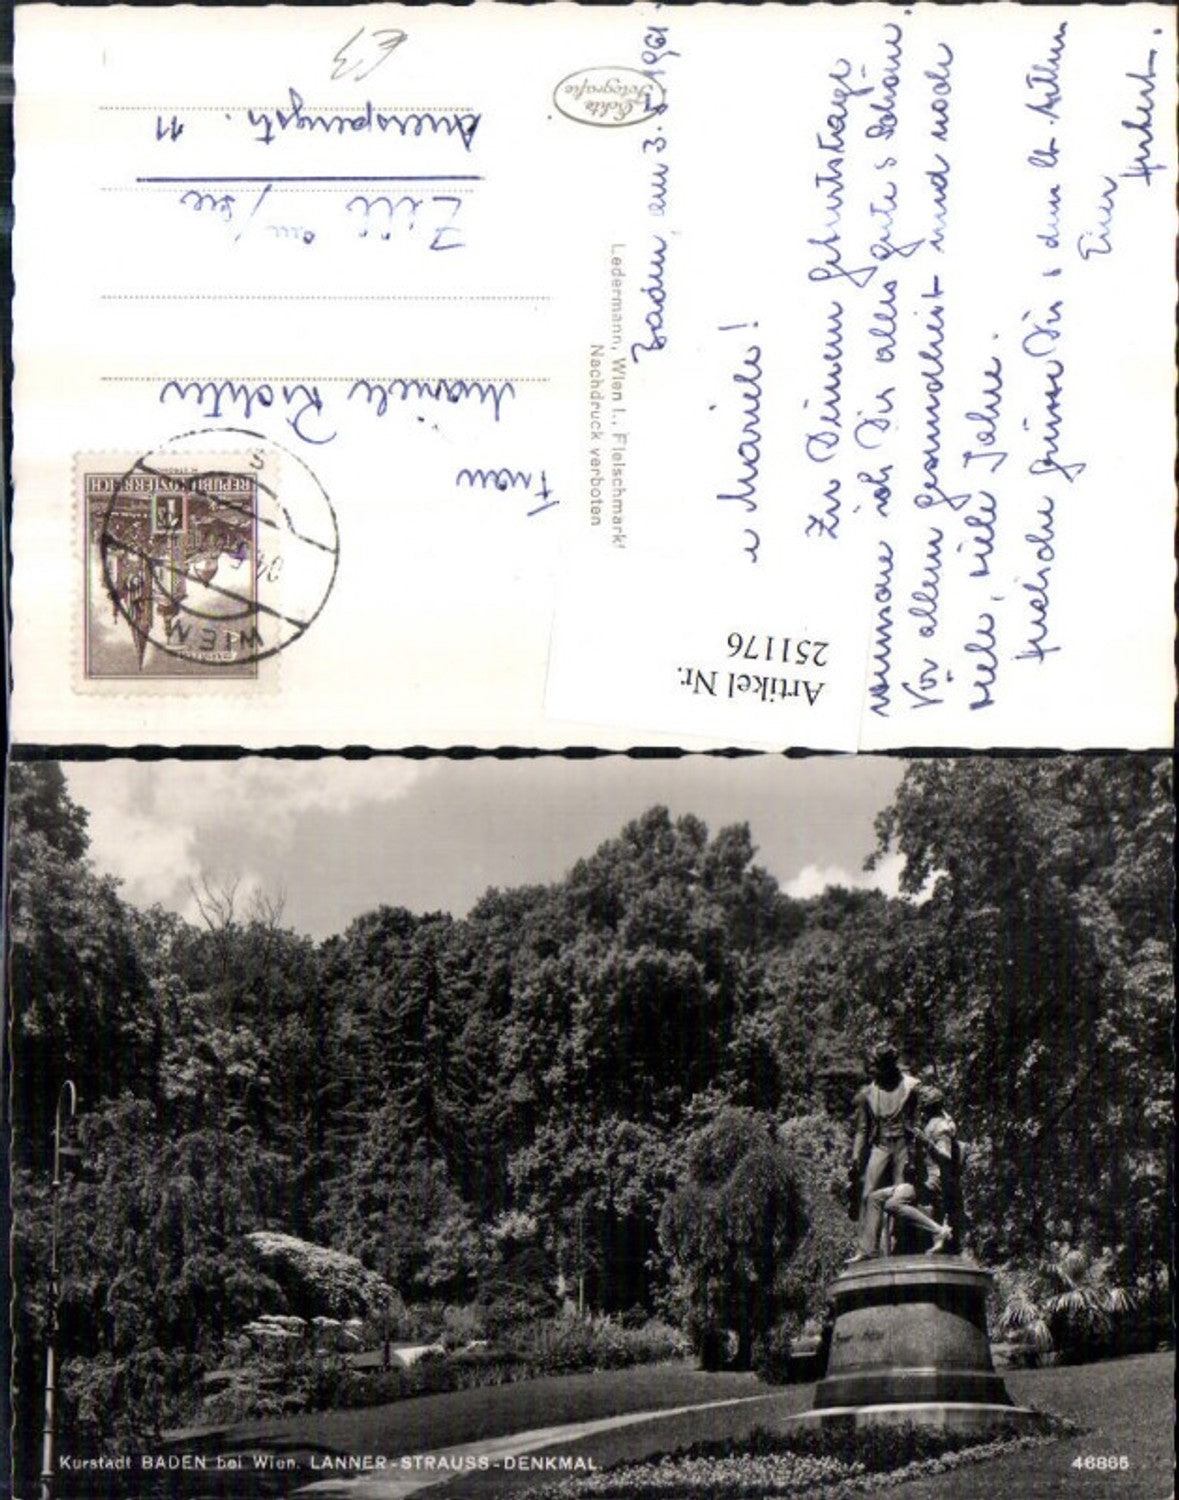 Echte
Fotografie
Baden, am 3. 1961
Mariele!
Zu Deinem Geburtstage
wünsche ich Dir alles gute & Schöne.
Vor allem Gesundheit und noch
viele, viele Jahre.
Herzliche Grüsse Dir &
Euer
Hubert.
Ledermann, Wien I., Fleischmarkt
Nachdruck verboten
REPUBLIK ÖSTERREICH
WIEN
Frau
Mariele Richter
Zell am/See
Auerspergstr. 11
Artikel Nr.
251176
Kurstadt BADEN bei Wien. LANNER-STRAUSS-DENKMAL.
46865